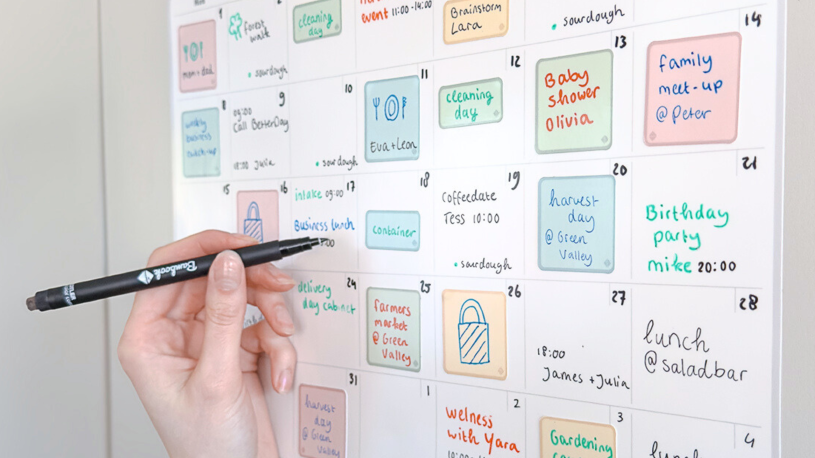 1
mom + dad
forest
walk
sourdough
cleaning
day
event 11:00-14:00
Brainstorm
Lara
sourdough
8
weekly
business
9
09:00
Call BetterDay
18:30 Julia
10
sourdough
11
Eva + Leon
12
cleaning
day
13
Baby
shower
Olivia
14
family
meet-up
@ Peter
15
16
17
intake 09:00
Business lunch
18
container
19
Coffeedate
Tess 10:00
sourdough
20
harvest
day
@ Green
Valley
21
Birthday
party
mike 20:00
Bambook
24
delivery
day cabinet
25
farmers
market
@ Green
Valley
26
27
18:00
James + Julia
28
lunch
@saladbar
31
harvest
day
@ Green
Valley
1
2
welness
with Yara
3
Gardening
4
lunch